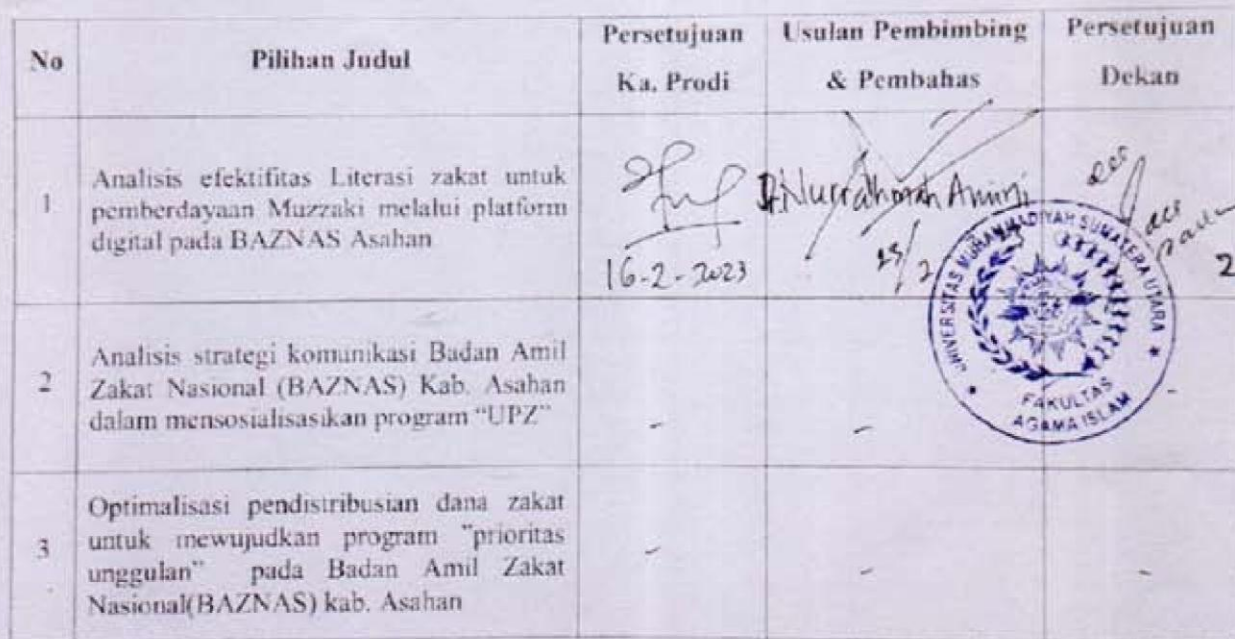 No
Pilihan Judul
Persetujuan
Ka. Prodi
Usulan Pembimbing
& Pembahas
Persetujuan
Dekan
1
Analisis efektifitas Literasi zakat untuk
pemberdayaan Muzzaki melalui platform
digital pada BAZNAS Asahan
16-2-2023
Dr. Nurrahmah Amini
acc
acc
UNIVERSITAS MUHAMMADIYAH SUMATERA UTARA
FAKULTAS
AGAMA ISLAM
2
Analisis strategi komunikasi Badan Amil
Zakat Nasional (BAZNAS) Kab. Asahan
dalam mensosialisasikan program “UPZ”
-
-
-
3
Optimalisasi pendistribusian dana zakat
untuk mewujudkan program ”prioritas
unggulan” pada Badan Amil Zakat
Nasional(BAZNAS) kab. Asahan
-
-
-